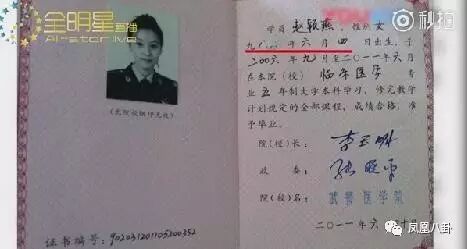 全明星直播
Allstar live
秒拍
学员 赵颖燕 性别 女
年六月四日出生,于
二〇〇六年九月至二〇一一年六月
在本院(校) 临床医学
专业五年制大学本科学习,修完教学
计划规定的全部课程,成绩合格,准
予毕业。
(无院校钢印无效)
院(校)长:
政 委:
院(校)名: 武警医学院
二〇一一年六月
证书编号:902031201105200352
凤凰八卦